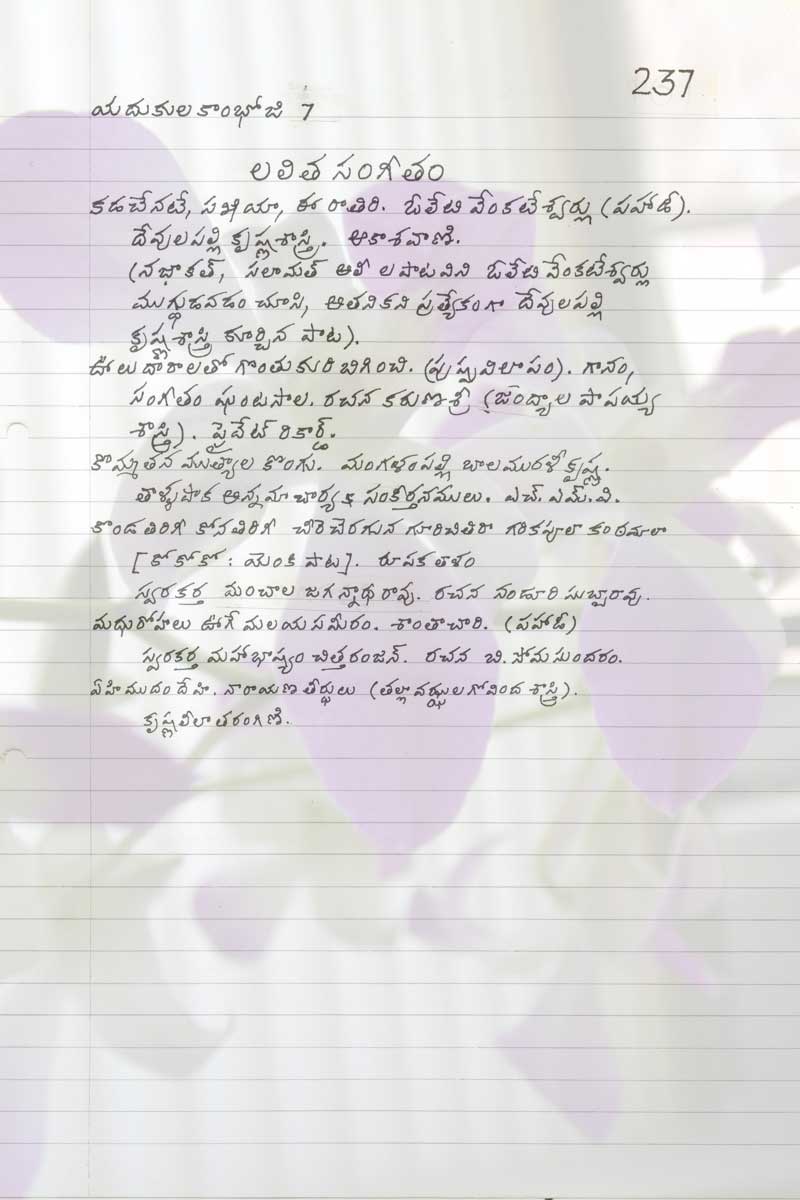 237
యదుకులకాంభోజి 7
లలిత సంగీతం
కడచేనటే, సఖియా, ఈ రాతిరి. ఓలేటి వేంకటేశ్వర్లు (పహాడీ).
దేవులపల్లి కృష్ణశాస్త్రి. ఆకాశవాణి.
(నజాకత్, సలామత్ ఆలీ ల పాటవిని ఓలేటి వేంకటేశ్వర్లు
ముగ్ధుడవడం చూసి, ఆతనికని ప్రత్యేకంగా దేవులపల్లి
కృష్ణశాస్త్రి కూర్చిన పాట).
ఊలు దారాలతో గొంతుకురి బిగించి. (పుష్పవిలాపం). గానం,
సంగీతం ఘంటసాల. రచన కరుణశ్రీ (జంధ్యాల పాపయ్య
శాస్త్రి). ప్రైవేట్ రికార్డ్.
కొమ్మ తన ముత్యాల కొంగు. మంగళంపల్లి బాలమురళీకృష్ణ.
తాళ్ళపాక అన్నమాచార్య సంకీర్తనములు. ఎచ్. ఎమ్. వి.
కొండతిరిగీ కోనతిరిగీ చీరెచెరగున గూరిచితిరా గరికపూలా కందమాలా
[కోకోకో : యెంకి పాట]. రూపకతాళం
స్వరకర్త మంచాల జగన్నాథరావు. రచన నండూరి సుబ్బారావు.
మధురోహలు ఊగే మలయసమీరం. శాంతాచారి. (పహాడీ)
స్వరకర్త మహాభాష్యం చిత్తరంజన్. రచన బి. సోమసుందరం.
ఏహి ముదం దేహి. నారాయణ తీర్థులు (తల్లావఝ్ఝుల గోవింద శాస్త్రి).
కృష్ణలీలా తరంగిణి.